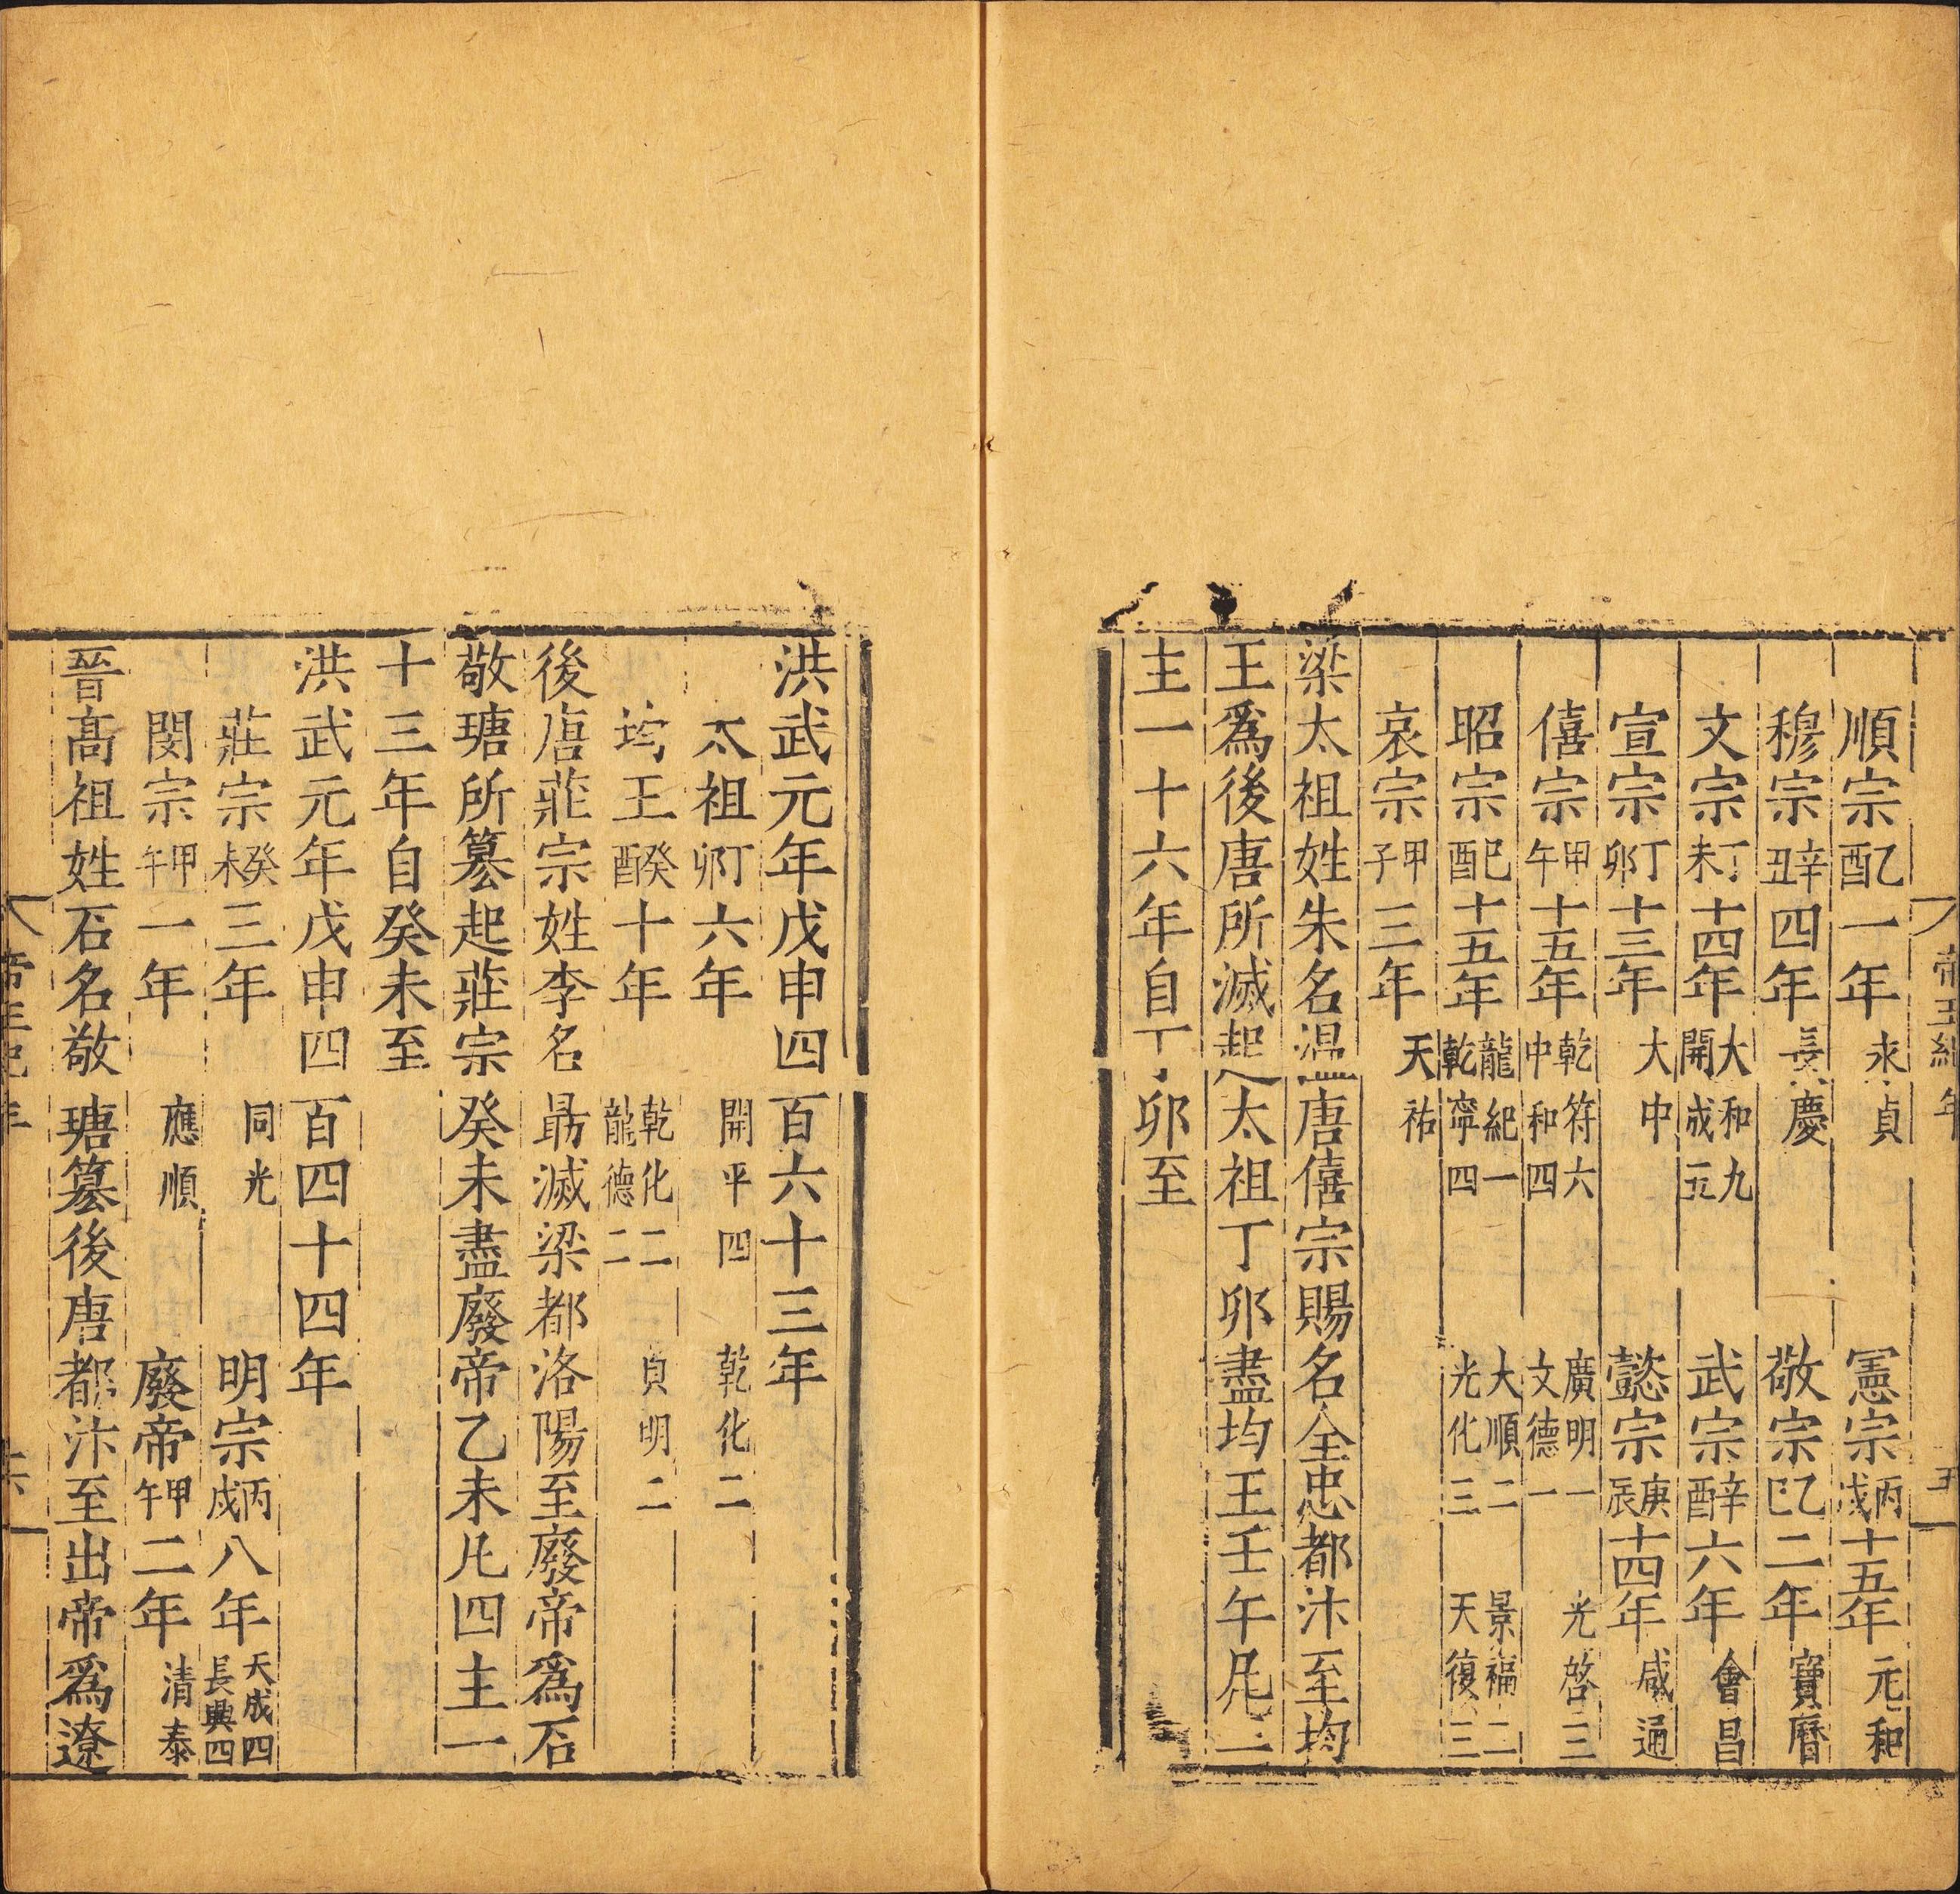 帝王紀年 五
順宗乙酉一年永貞 憲宗丙戌十五年元和
穆宗辛丑四年長慶 敬宗乙巳二年寶曆
文宗丁未十四年大和九開成五 武宗辛酉六年會昌
宣宗丁卯十三年大中 懿宗庚辰十四年咸通
僖宗甲午十五年乾符六中和四 廣明一文德一 光啓三
昭宗己酉十五年龍紀一乾寧四 大順二光化三 景福二天復三
哀宗甲子三年天祐
梁太祖姓朱名温唐僖宗賜名全忠都汴至均
王爲後唐所滅起太祖丁卯盡均王壬午凡二
主一十六年自丁卯至
洪武元年戊申四百六十三年
太祖丁卯六年開平四 乾化二
均王癸酉十年乾化二龍德二 貞明二
後唐莊宗姓李名勗滅梁都洛陽至廢帝爲石
敬瑭所簒起莊宗癸未盡廢帝乙未凡四主一
十三年自癸未至
洪武元年戊申四百四十四年
莊宗癸未三年同光 明宗丙戌八年天成四長興四
閔宗甲午一年應順 廢帝甲午二年清泰
晉高祖姓石名敬瑭簒後唐都汴至出帝爲遼
帝王紀年 六